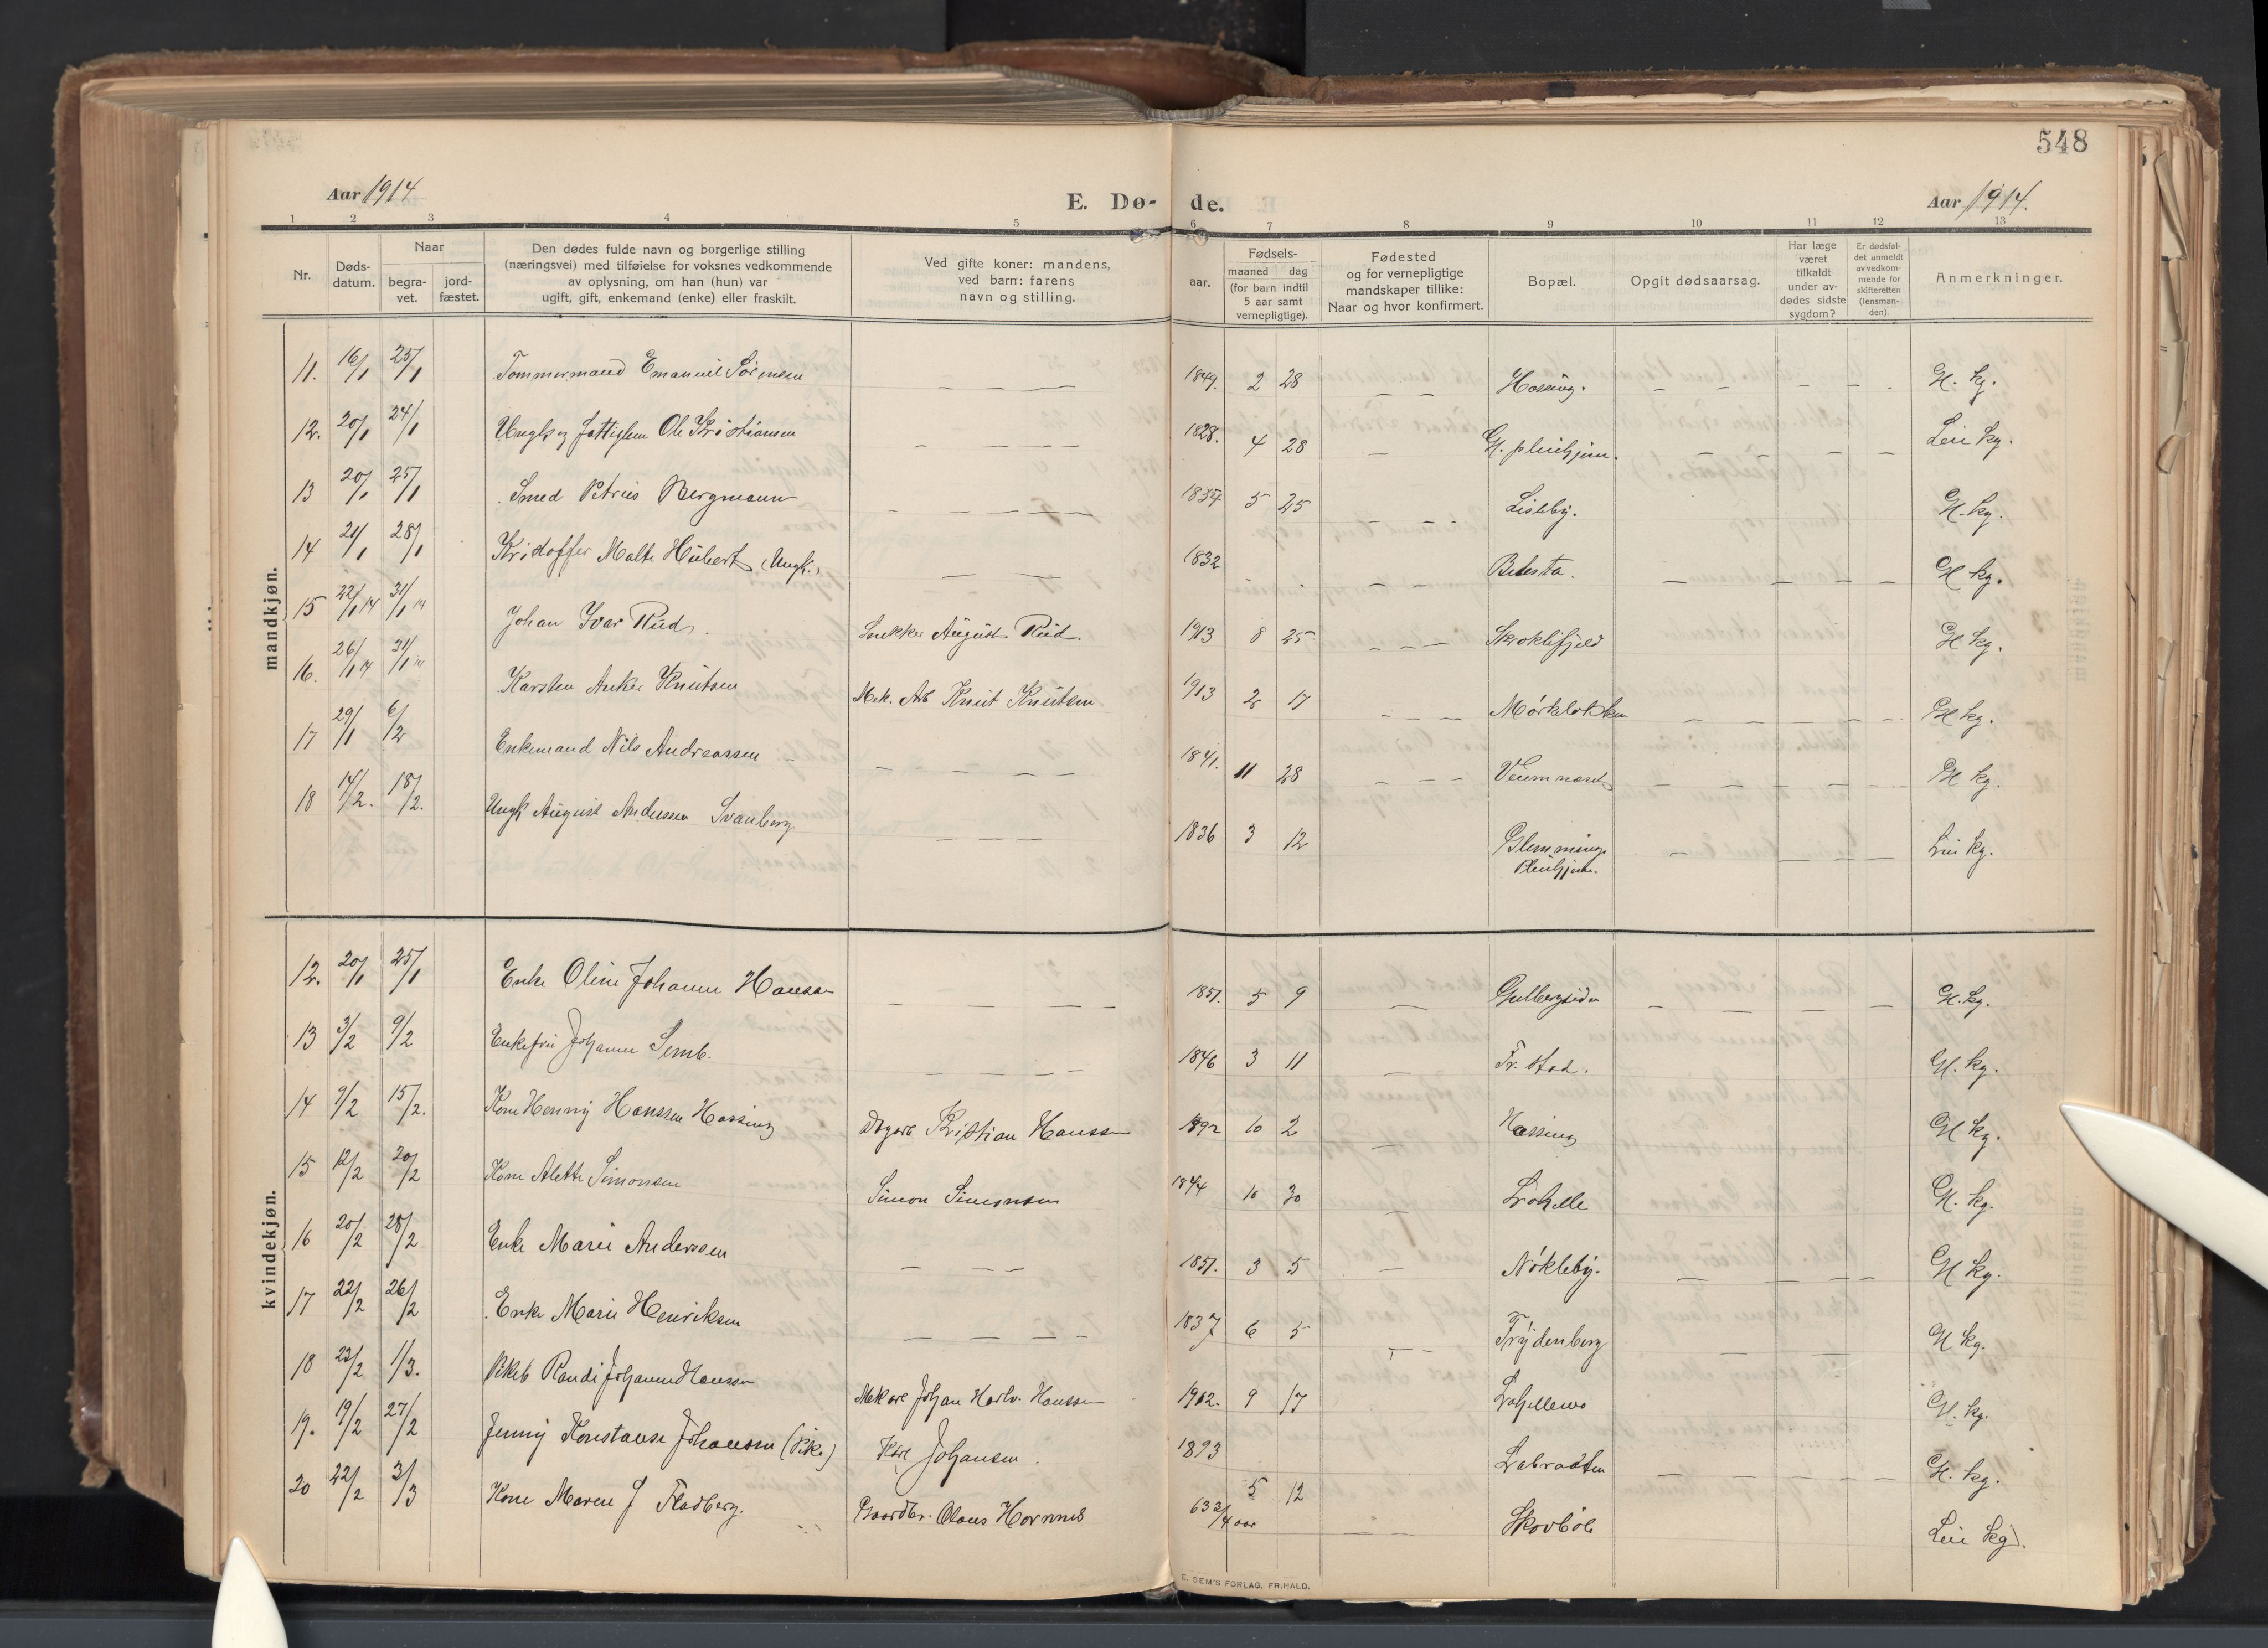 548
Aar 1914
E. Dø-
de.
Aar 1914.
1 2 3 4 5 6 7 8 9 10 11 12 13
Nr.
Døds-
datum.
Naar
begra-
vet.
jord-
fæstet.
Den dødes fulde navn og borgerlige stilling
(næringsvei) med tilføielse for voksnes vedkommende
av oplysning, om han (hun) var
ugift, gift, enkemand (enke) eller fraskilt.
Ved gifte koner: mandens,
ved barn: farens
navn og stilling.
aar.
Fødsels-
maaned dag
(for barn indtil
5 aar samt
vernepligtige).
Fødested
og for vernepligtige
mandskaper tillike:
Naar og hvor konfirmert.
Bopæl.
Opgit dødsaarsag.
Har læge
været
tilkaldt
under av-
dødes sidste
sygdom?
Er dødsfal-
det anmeldt
av vedkom-
mende for
skifteretten
(lensman-
den).
Anmerkninger.
mandkjøn.
11. 16/1 25/1 Tømmermand Emanuel Sörensen — — — — 1849. 2 28 — — Hassing. — — — — Gl. kg.
12. 20/1 24/1 Ole Kristiansen — — — — 1828. 4 28 — Gl. pleiehjem. — — — — Leie kg.
13 20/1 25/1 Smed Petrus Bergmann — — — — 1834 5 25 — — — Lisleby. Gl. kg.
14 21/1 28/1 Kristoffer Malte Hübert (Ungk.) — — 1832 — — — — — — Gl kg.
15 22/1 14 31/1 14 Johan Ivar Rud. Snekker August Rud. 1913 8 25 — — — Gl kg.
16. 26/1 14 31/1 14 Karsten Anker Knutsen Mek. Arb Knut Knutsen 1913 2 17 — — — — — — — Gl kg.
17 29/1 6/2 Enkemand Nils Andreassen — — — — — 1841. 11 28 — — — — — — — Gl kg.
18 14/2. 18/2. Ungk August Andersen Svanberg — — — 1836 3 12 Glemminge
Pleiehjem. — — — — Leie kg.
kvindekjøn.
12. 20/1 25/1 Enke Oline Johanne Hansen — — — — 1851. 5 9 — Gulbergsiden — — — — Gl. kg.
13 3/2 9/2 Enkefru Johanne Semb. — — — — 1846 3 11 — Fr. stad. Gl. kg.
14 9/2 15/2. Kone Henny Hanssen Hassing Kristian Hanssen 1892 10 2 — Hassing Gl kg.
15 12/2 20/2 Kone Alette Simonsen Simon Simonsen 1844 10 30 — Gl. kg.
16 20/2 28/2 Enke Marie Anderssen — — — 1851. 3 5 — Nökleby. — — — — Gl kg.
17 22/2 26/2 Enke Marie Henriksen — — — — 1837 6 5 — — Frydenberg — — Gl kg.
18 23/2 1/3. Pikeb Randi Johanne Hansen Mek arb Johan Hartv. Hanssen 1912. 9 17 Gl. kg.
19. 19/2 27/2 Jenny Konstanse Johansen (Pike) Karl Johansen. 1893 5 12 Labraaten — — — — Gl. kg.
20 22/2 3/3 Kone Maren J Fladberg. Gaardbr. Olaus Hornnes 63 3/4 aar — — Skovböle Leie kg.
E. SEM'S FORLAG, FR.HALD.